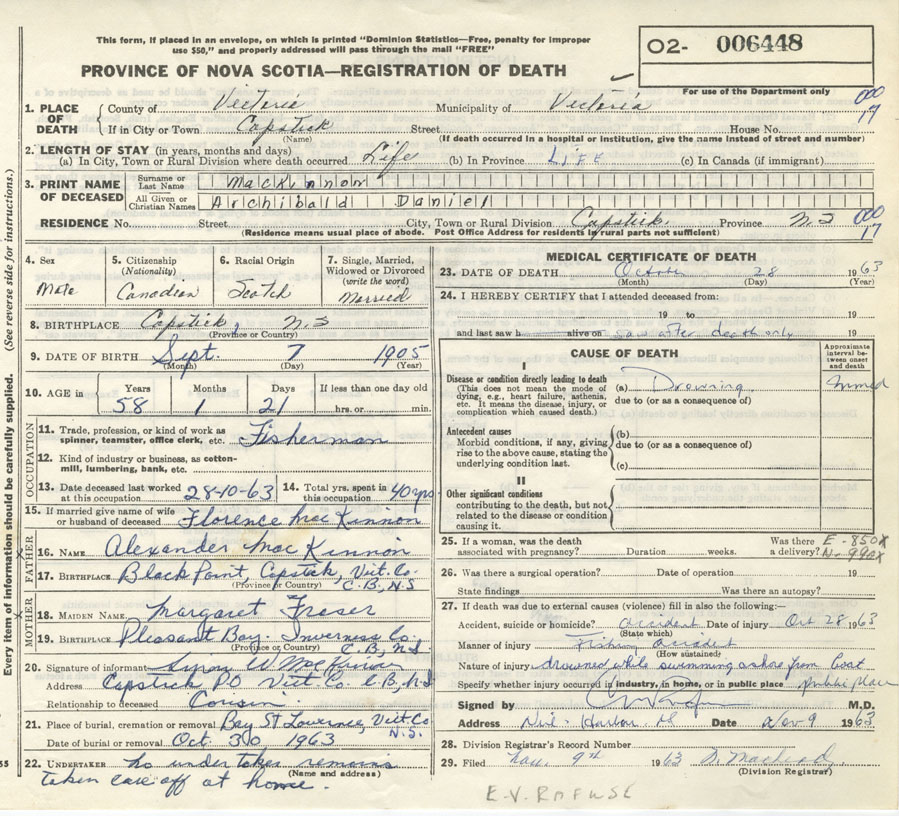 This form, if placed in an envelope, on which is printed "Dominion Statistics—Free, penalty for improper
use $50," and properly addressed will pass through the mail "FREE"
02- 006448
PROVINCE OF NOVA SCOTIA—REGISTRATION OF DEATH
For use of the Department only
000
17
1. PLACE OF DEATH County of Victoria Municipality of Victoria
If in City or Town Capstick Street House No.
(Name) (If death occurred in a hospital or institution, give the name instead of street and number)
2. LENGTH OF STAY (in years, months and days)
(a) In City, Town or Rural Division where death occurred Life (b) In Province LIFE (c) In Canada (if immigrant)
3. PRINT NAME OF DECEASED Surname or Last Name MacKinnon
All Given or Christian Names Archibald Daniel
RESIDENCE No. Street City, Town or Rural Division Capstick Province N.S
000
17
(Residence means usual place of abode. Post Office Address for residents of rural parts not sufficient)
4. Sex Male
5. Citizenship (Nationality) Canadian
6. Racial Origin Scotch
7. Single, Married, Widowed or Divorced (write the word) Married
8. BIRTHPLACE Capstick, N.S
(Province or Country)
9. DATE OF BIRTH Sept. 7 1905
(Month) (Day) (Year)
10. AGE in Years Months Days If less than one day old
58 1 21 hrs. or min.
OCCUPATION
11. Trade, profession, or kind of work as spinner, teamster, office clerk, etc. Fisherman
12. Kind of industry or business, as cotton-mill, lumbering, bank, etc.
13. Date deceased last worked at this occupation 28-10-63 14. Total yrs. spent in this occupation 40 yrs
15. If married give name of wife or husband of deceased Florence MacKinnon
FATHER
16. NAME Alexander MacKinnon
17. BIRTHPLACE Black Point, Capstick, Vict. Co.
(Province or Country) C.B., N.S
MOTHER
18. MAIDEN NAME Margaret Fraser
19. BIRTHPLACE Pleasant Bay. Inverness Co.
(Province or Country) C.B., N.S
20. Signature of informant W MacKinnon
Address Capstick P.O Vict. Co. C.B., N.S
Relationship to deceased Cousin
21. Place of burial, cremation or removal Bay St Lawrence, Vict Co
N.S.
Date of burial or removal Oct. 30, 1963
22. UNDERTAKER no undertaker remains
(Name and address)
taken care off at home.
MEDICAL CERTIFICATE OF DEATH
23. DATE OF DEATH October 28 1963
(Month) (Day) (Year)
24. I HEREBY CERTIFY that I attended deceased from:
19 to 19
and last saw h alive on saw after death only 19
CAUSE OF DEATH
Approximate interval between onset and death
I
Disease or condition directly leading to death (a) Drowning Immed
(This does not mean the mode of dying, e.g., heart failure, asthenia, etc. It means the disease, injury, or complication which caused death.)
due to (or as a consequence of)
Antecedent causes
Morbid conditions, if any, giving rise to the above cause, stating the underlying condition last.
(b)
due to (or as a consequence of)
(c)
II
Other significant conditions contributing to the death, but not related to the disease or condition causing it.
25. If a woman, was the death associated with pregnancy? Duration weeks. Was there a delivery?
E-850X
N-990X
26. Was there a surgical operation? Date of operation 19
State findings Was there an autopsy?
27. If death was due to external causes (violence) fill in also the following:—
Accident, suicide or homicide? accident Date of injury Oct 28 1963
(State which)
Manner of injury Fishing accident
(How sustained)
Nature of injury drowned while swimming ashore from boat
Specify whether injury occurred in industry, in home, or in public place public place
Signed by M.D.
Address Neil's Harbor NS Date Nov 9 1963
28. Division Registrar's Record Number
29. Filed Nov. 9th 1963
(Division Registrar)
E.V. RAFUSE
Every item of information should be carefully supplied. (See reverse side for instructions.)
55